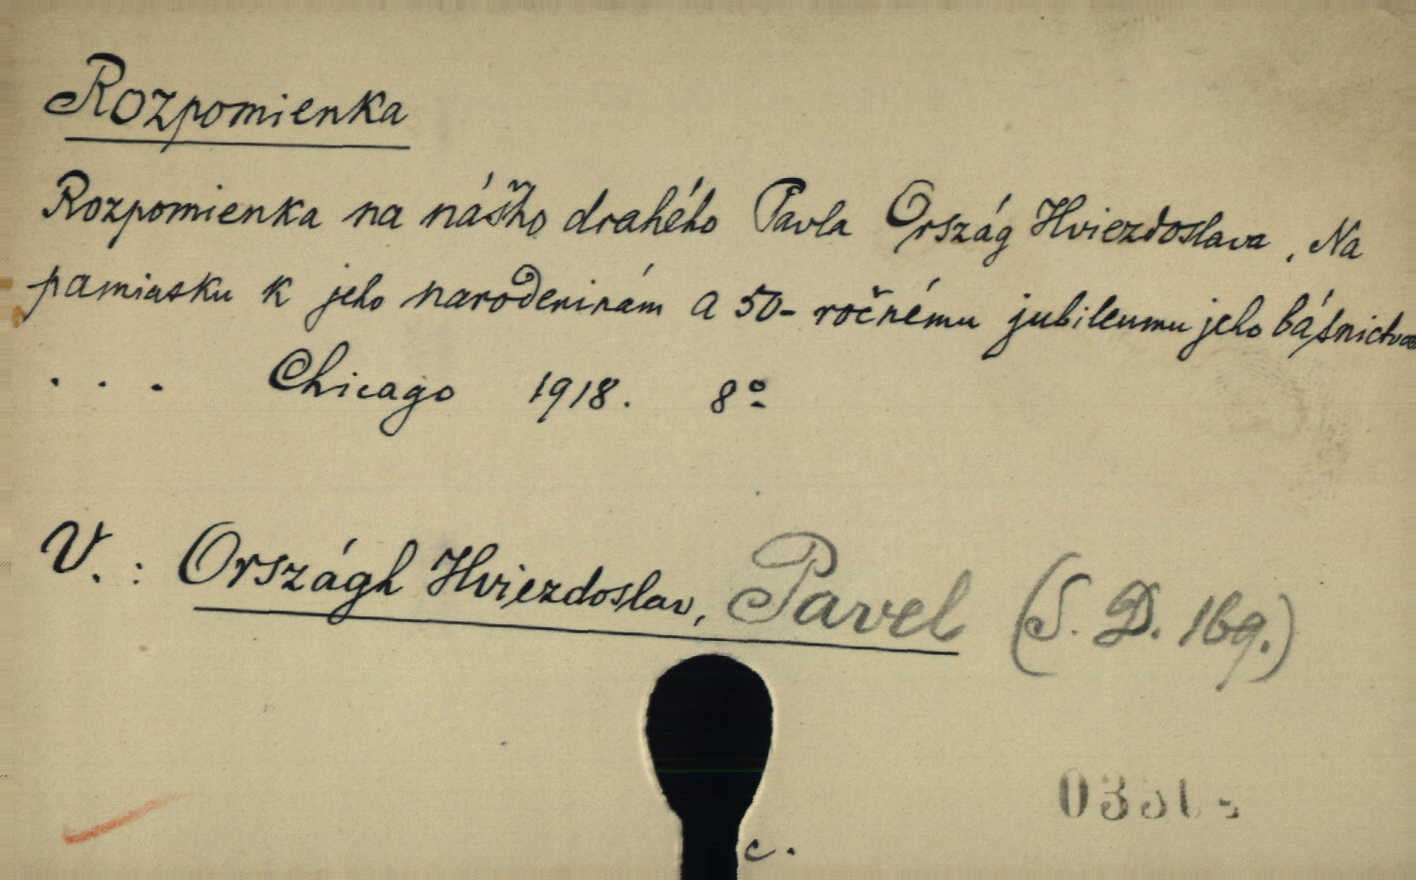 Rozpomienka
Rozpomienka na nášho drahého Pavla Ország Hviezdoslava. Na
pamiasku k jeho narodeninám a 50-ročnému jubileumu jeho básnictva
. . . Chicago 1918. 8°
V. : Országh Hviezdoslav, Pavel (S. D. 169.)
c.